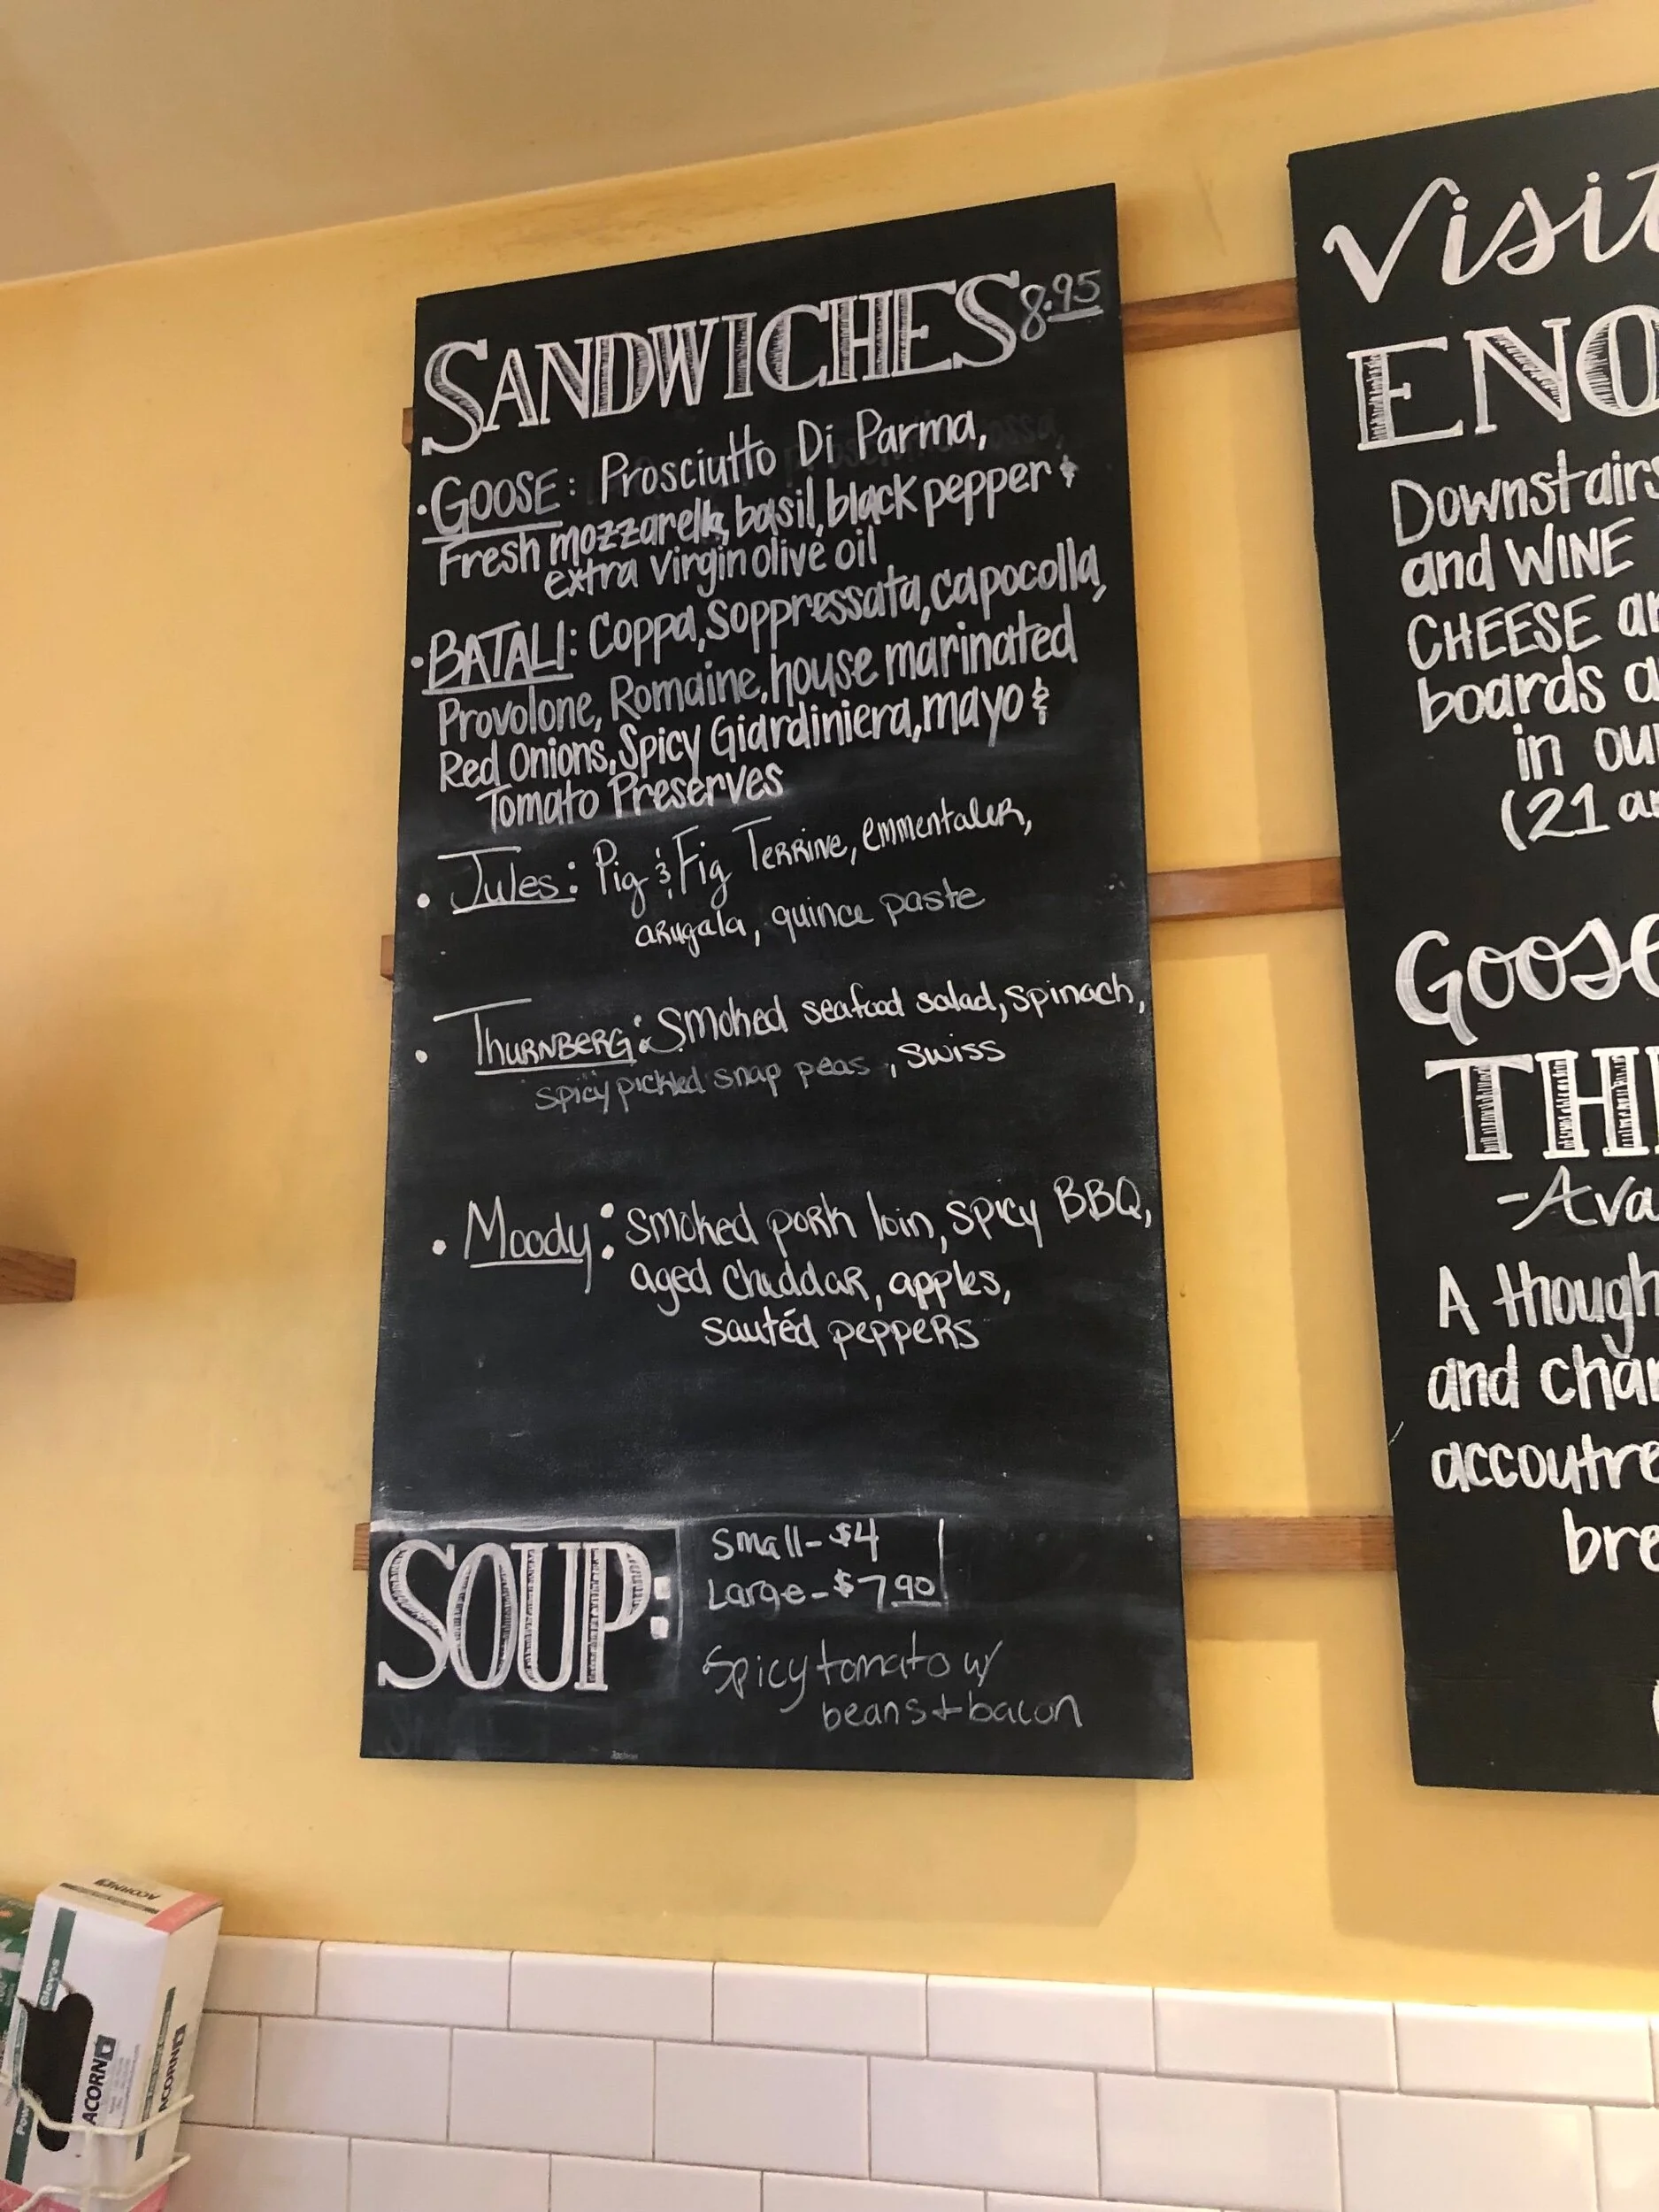 SANDWICHES 8.95
• GOOSE: Prosciutto Di Parma,
Fresh mozzarella, basil, black pepper &
extra virgin olive oil
• BATALI: Coppa, Soppressata, capocolla,
Provolone, Romaine, house marinated
Red Onions, Spicy Giardiniera, mayo &
Tomato Preserves
• Jules: Pig & Fig Terrine, emmentaler,
arugala, quince paste
• Thurnberg: Smoked seafood salad, spinach,
spicy pickled snap peas, swiss
• Moody: smoked pork loin, spicy BBQ,
aged cheddar, apples,
sautéd peppers
SOUP:
Small - $4
Large - $7.90
Spicy tomato w/
beans + bacon
Visit
ENO
Downstairs
and WINE
CHEESE
boards
in
(21
Goose
TH
-Ava
A though
and char
accoutre
bre
ACORN
ACORN
ACORN
Gloves